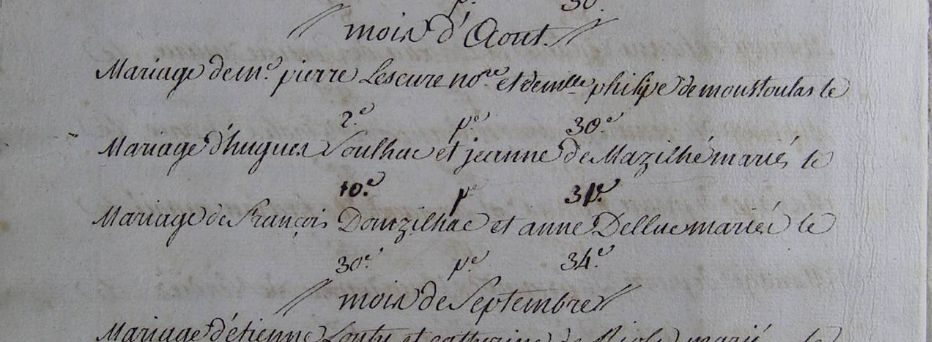 pe. 30.
mois d'Aout.
Mariage de mr. pierre Lescure nore. et demlle philipe de moustoulas le
2.e pe. 30.e
Mariage d'hugues Soulhac et jeanne de Mazilhé mariés le
10.e pe 31e.
Mariage de françois Domzilhac et anne Delluc mariés le
30.e pe. 34.e
mois de Septembre
Mariage d'étienne et catherine de marié le